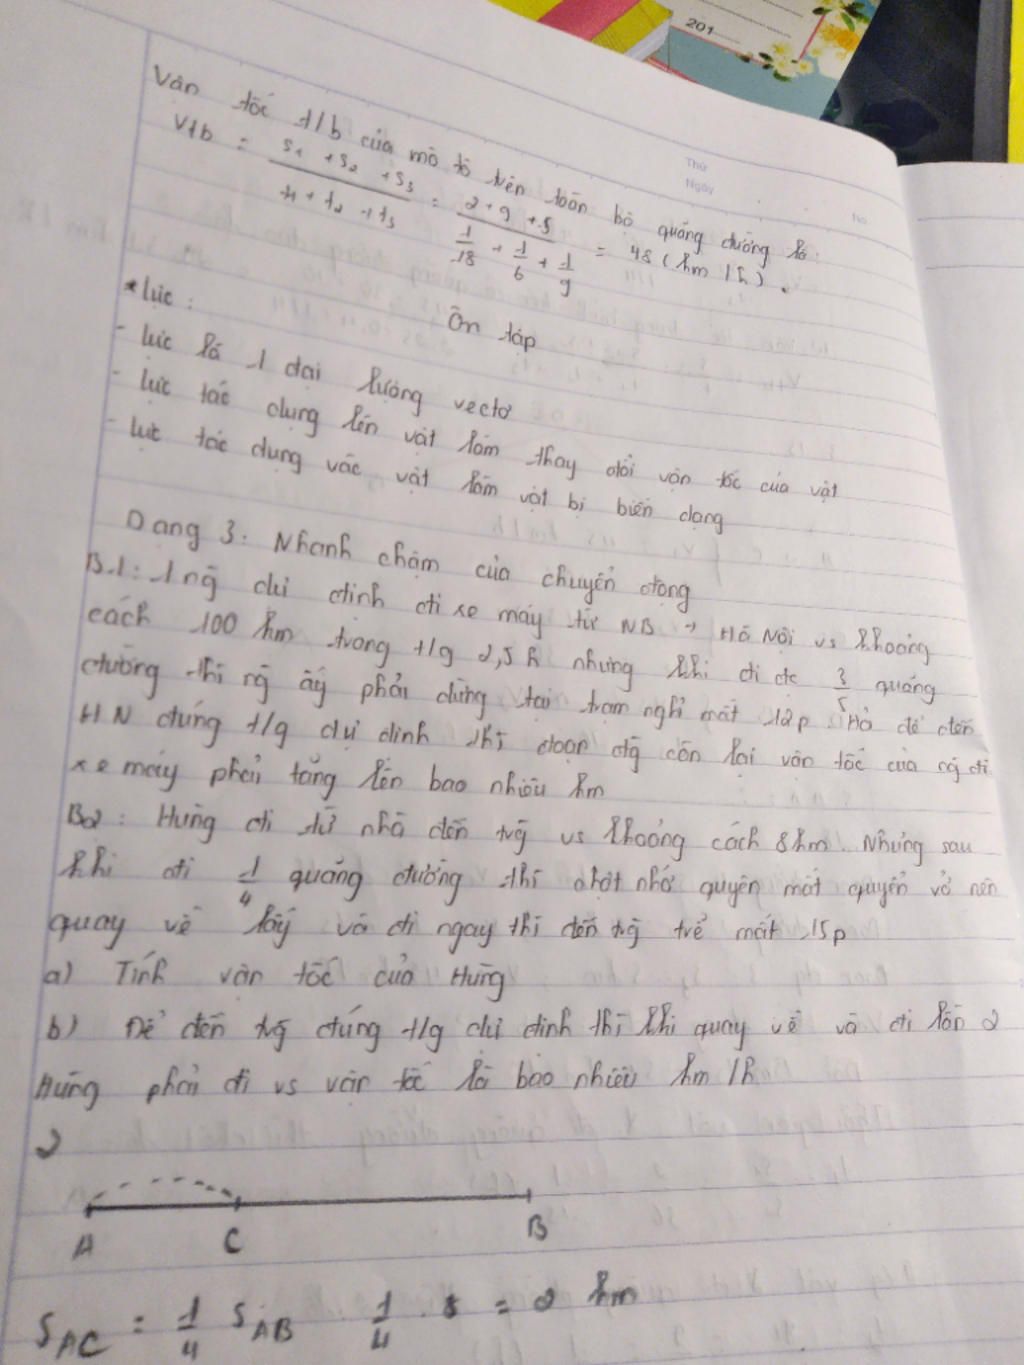 201......
Thứ
Ngày
No
Vận tốc t/b của mô tô trên toàn bộ quãng đường là:
Vtb = (S1 + S2 + S3) / (t1 + t2 + t3) = (2 + 9 + 5) / (1/18 + 1/6 + 1/9) = 48 (km/h).
Ôn tập
* lực:
- lực là 1 đại lượng vectơ
- lực tác dụng lên vật làm thay đổi vận tốc của vật
- lực tác dụng vác vật làm vật bị biến dạng
Dạng 3: Nhanh chậm của chuyển động
B.1: 1 ng dự định đi xe máy từ NB → Hà Nội vs khoảng
cách 100 km trong t/g 2,5h nhưng khi đi đc 3/5 quãng
đường thì ng ấy phải dừng tại trạm nghỉ mất 12p. Hỏi để đến
HN đúng t/g dự định thì đoạn đg còn lại vận tốc của ng đi
xe máy phải tăng lên bao nhiêu km
B2: Hưng đi từ nhà đến trg vs khoảng cách 8km. Nhưng sau
khi đi 1/4 quãng đường thì chợt nhớ quyên mất quyển vở nên
quay về lấy và đi ngay thì đến trg trể mất 15p
a) Tính vận tốc của Hưng
b) Để đến trg đúng t/g dự định thì khi quay về và đi lần 2
Hưng phải đi vs vận tốc là bao nhiêu km/h
2
A C B
S_AC = 1/4 S_AB 1/4 . 8 = 2 km